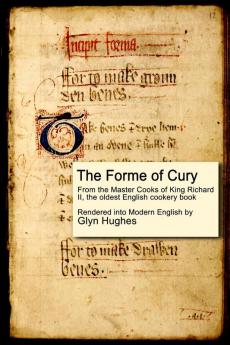 Incipit forma.
For to make groun
den benes.
Take benes & drye hem
an ovene & hulle
The Forme of Cury
From the Master Cooks of King Richard
II, the oldest English cookery book
Rendered into Modern English by
Glyn Hughes
For to make drawen
benes.